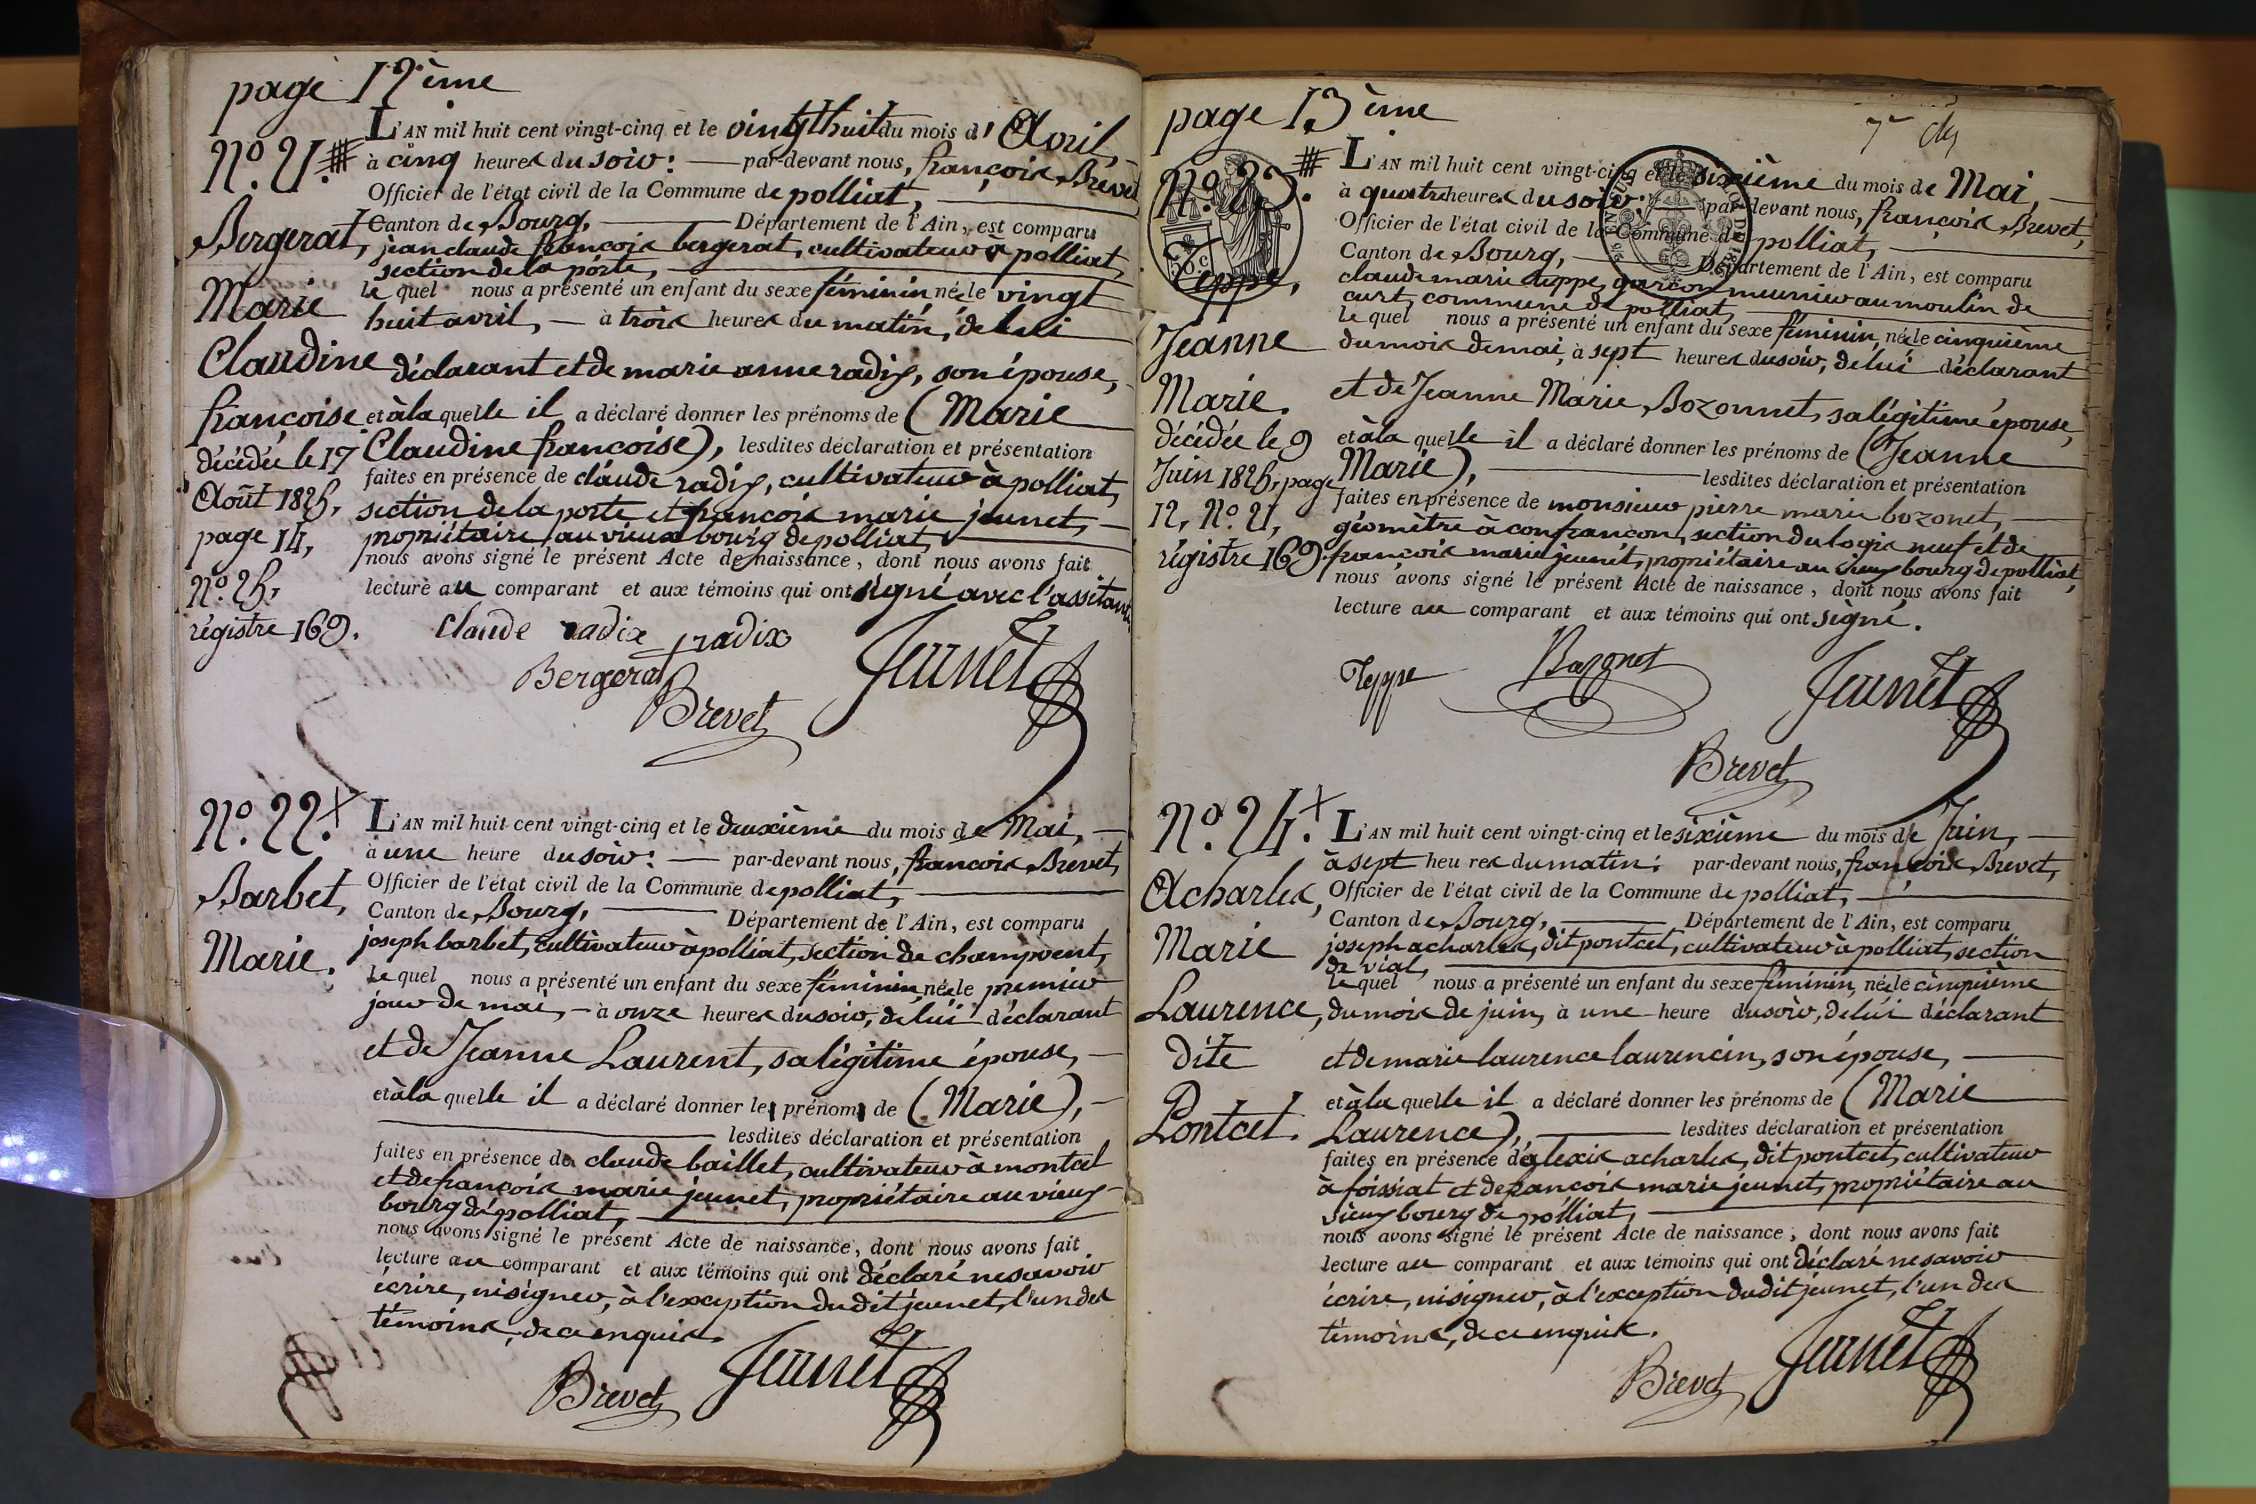 page 12ème
N.º 21.
L'AN mil huit cent vingt-cinq et le vingthuit du mois d'Avril,
à cinq heures du soir: par-devant nous, françois Brevet
Officier de l'état civil de la Commune de polliat,
Canton de Bourg, Département de l'Ain, est comparu
jean claude françois bergerat, cultivateur à polliat,
section de la porte,
le quel nous a présenté un enfant du sexe féminin née le vingt
huit avril, à trois heures du matin, de lui
déclarant et de marie anne radix, son épouse,
et à la quelle il a déclaré donner les prénoms de (Marie
Claudine françoise), lesdites déclaration et présentation
faites en présence de claude radix, cultivateur à polliat,
section de la porte et françois marie jeunet,
propriétaire au vieux bourg de polliat,
nous avons signé le présent Acte de naissance, dont nous avons fait
lecture au comparant et aux témoins qui ont signé avec l'assitant.
Bergerat,
Marie
Claudine
françoise
décédée le 17
Août 1825,
page 14,
N.º 25,
régistre 169.
claude radix radix
Bergerat Jeunet
Brevet
N.º 22.
L'AN mil huit cent vingt-cinq et le deuxième du mois de Mai,
à une heure du soir: par-devant nous, françois Brevet,
Officier de l'état civil de la Commune de polliat,
Canton de Bourg, Département de l'Ain, est comparu
joseph barbet, cultivateur à polliat, section de champvent,
le quel nous a présenté un enfant du sexe féminin née le premier
jour de mai, à onze heures du soir, de lui déclarant
et de Jeanne Laurent, sa légitime épouse,
et à la quelle il a déclaré donner le prénom de (Marie),
lesdites déclaration et présentation
faites en présence de claude baillet, cultivateur à montcet
et de françois marie jeunet, propriétaire au vieux
bourg de polliat,
nous avons signé le présent Acte de naissance, dont nous avons fait
lecture au comparant et aux témoins qui ont déclaré ne savoir
écrire, ni signer, à l'exception du dit jeunet, l'un des
témoins, de ce enquis.
Barbet,
Marie.
Brevet Jeunet
page 13ème
N.º 23.
L'AN mil huit cent vingt-cinq et le sixième du mois de Mai,
à quatre heures du soir: par-devant nous, françois Brevet,
Officier de l'état civil de la Commune de polliat,
Canton de Bourg, Département de l'Ain, est comparu
claude marie teppe, garçon meunier au moulin de
curt, commune de polliat,
le quel nous a présenté un enfant du sexe féminin, née le cinquième
du mois de mai, à sept heures du soir, de lui déclarant
et de Jeanne Marie Bozonnet, sa légitime épouse,
et à la quelle il a déclaré donner les prénoms de (Jeanne
Marie), lesdites déclaration et présentation
faites en présence de monsieur pierre marie bozonet,
géomètre à confrancon, section du logis neuf et de
françois marie jeunet, propriétaire au vieux bourg de polliat,
nous avons signé le présent Acte de naissance, dont nous avons fait
lecture au comparant et aux témoins qui ont signé.
Teppe,
Jeanne
Marie.
décédée le 9
Juin 1825, page
12, N.º 21,
régistre 169.
Teppe Bozonet Jeunet
Brevet
N.º 24.
L'AN mil huit cent vingt-cinq et le sixième du mois de Juin,
à sept heures du matin: par-devant nous, françois Brevet,
Officier de l'état civil de la Commune de polliat,
Canton de Bourg, Département de l'Ain, est comparu
joseph acharles, dit pontcet, cultivateur à polliat, section
de vial,
le quel nous a présenté un enfant du sexe féminin, née le cinquième
du mois de juin, à une heure du soir, de lui déclarant
et de marie laurence laurencin, son épouse,
et à la quelle il a déclaré donner les prénoms de (Marie
Laurence), lesdites déclaration et présentation
faites en présence d'alexis acharles, dit pontcet, cultivateur
à foissiat et de françois marie jeunet, propriétaire au
vieux bourg de polliat,
nous avons signé le présent Acte de naissance, dont nous avons fait
lecture au comparant et aux témoins qui ont déclaré ne savoir
écrire, ni signer, à l'exception du dit jeunet, l'un des
témoins, de ce enquis.
Acharles,
Marie
Laurence,
dite
Pontcet.
Brevet Jeunet